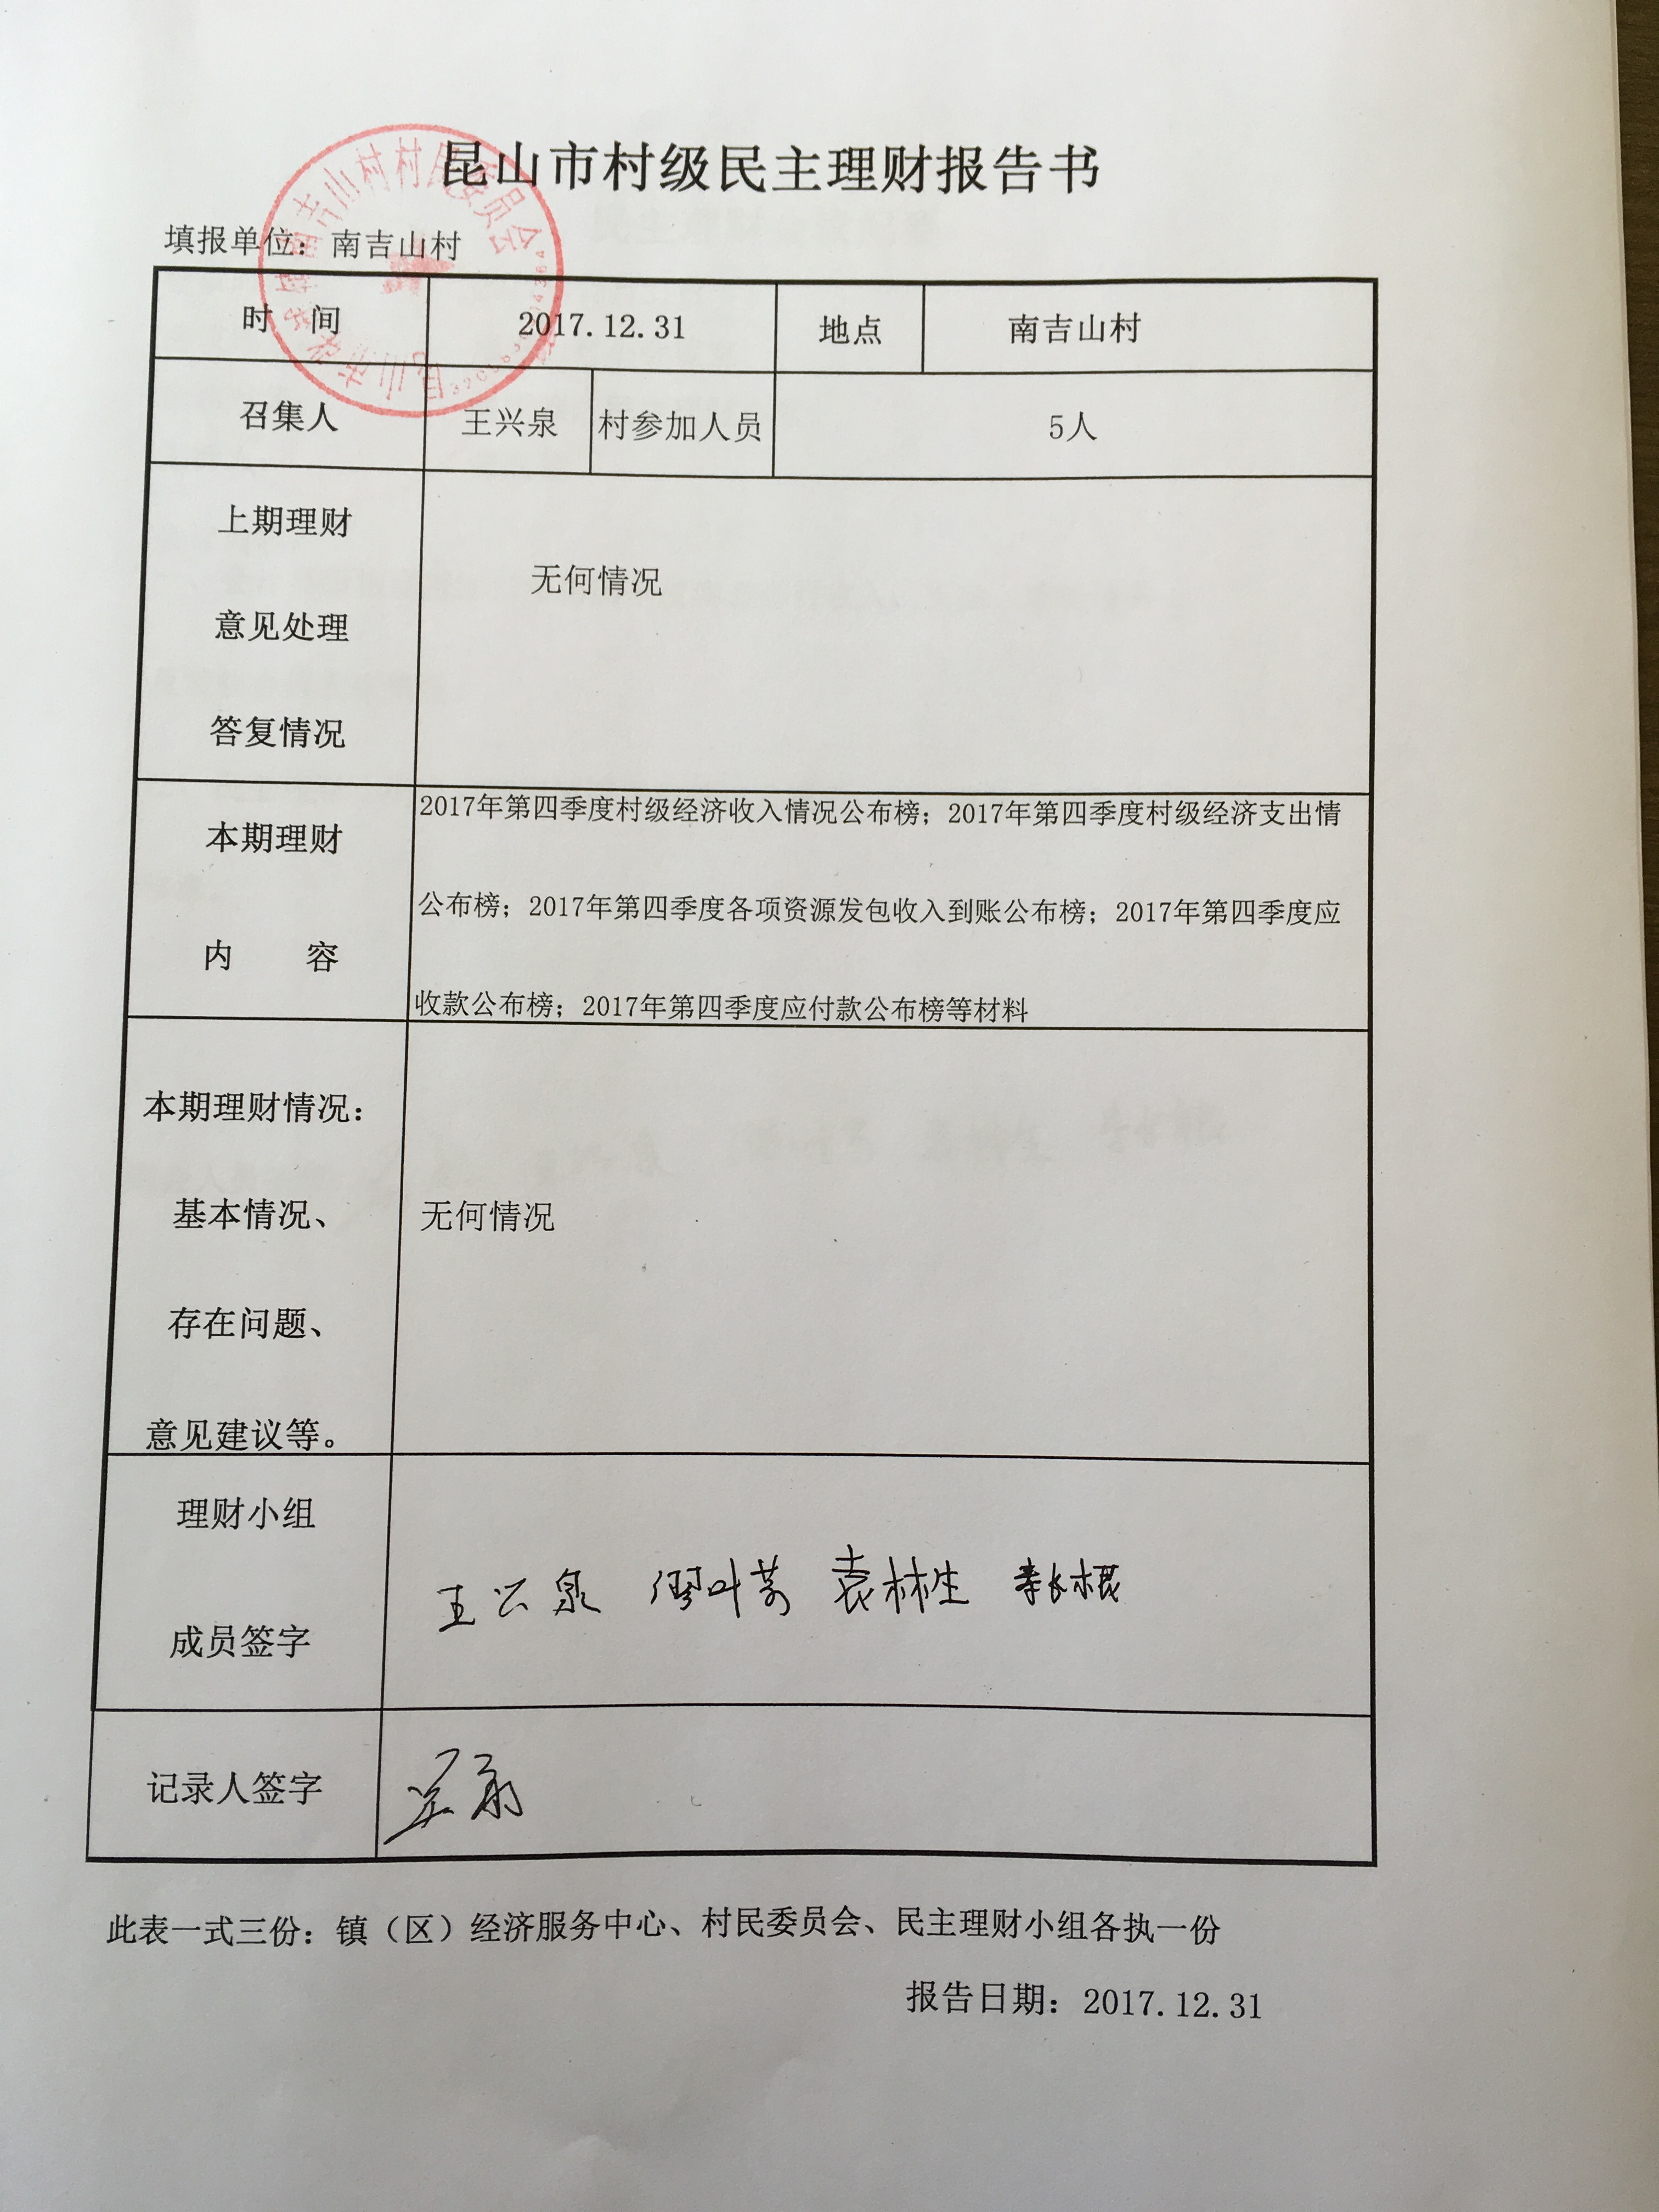 昆山市村级民主理财报告书
填报单位：南吉山村
时　间 2017.12.31 地点 南吉山村
召集人 王兴泉 村参加人员 5人
上期理财
无何情况
意见处理
答复情况
2017年第四季度村级经济收入情况公布榜；2017年第四季度村级经济支出情
本期理财
公布榜；2017年第四季度各项资源发包收入到账公布榜；2017年第四季度应
内　　容
收款公布榜；2017年第四季度应付款公布榜等材料
本期理财情况：
基本情况、 无何情况
存在问题、
意见建议等。
理财小组
王兴泉 缪叶芳 袁林生
成员签字
记录人签字
此表一式三份：镇（区）经济服务中心、村民委员会、民主理财小组各执一份
报告日期：2017.12.31